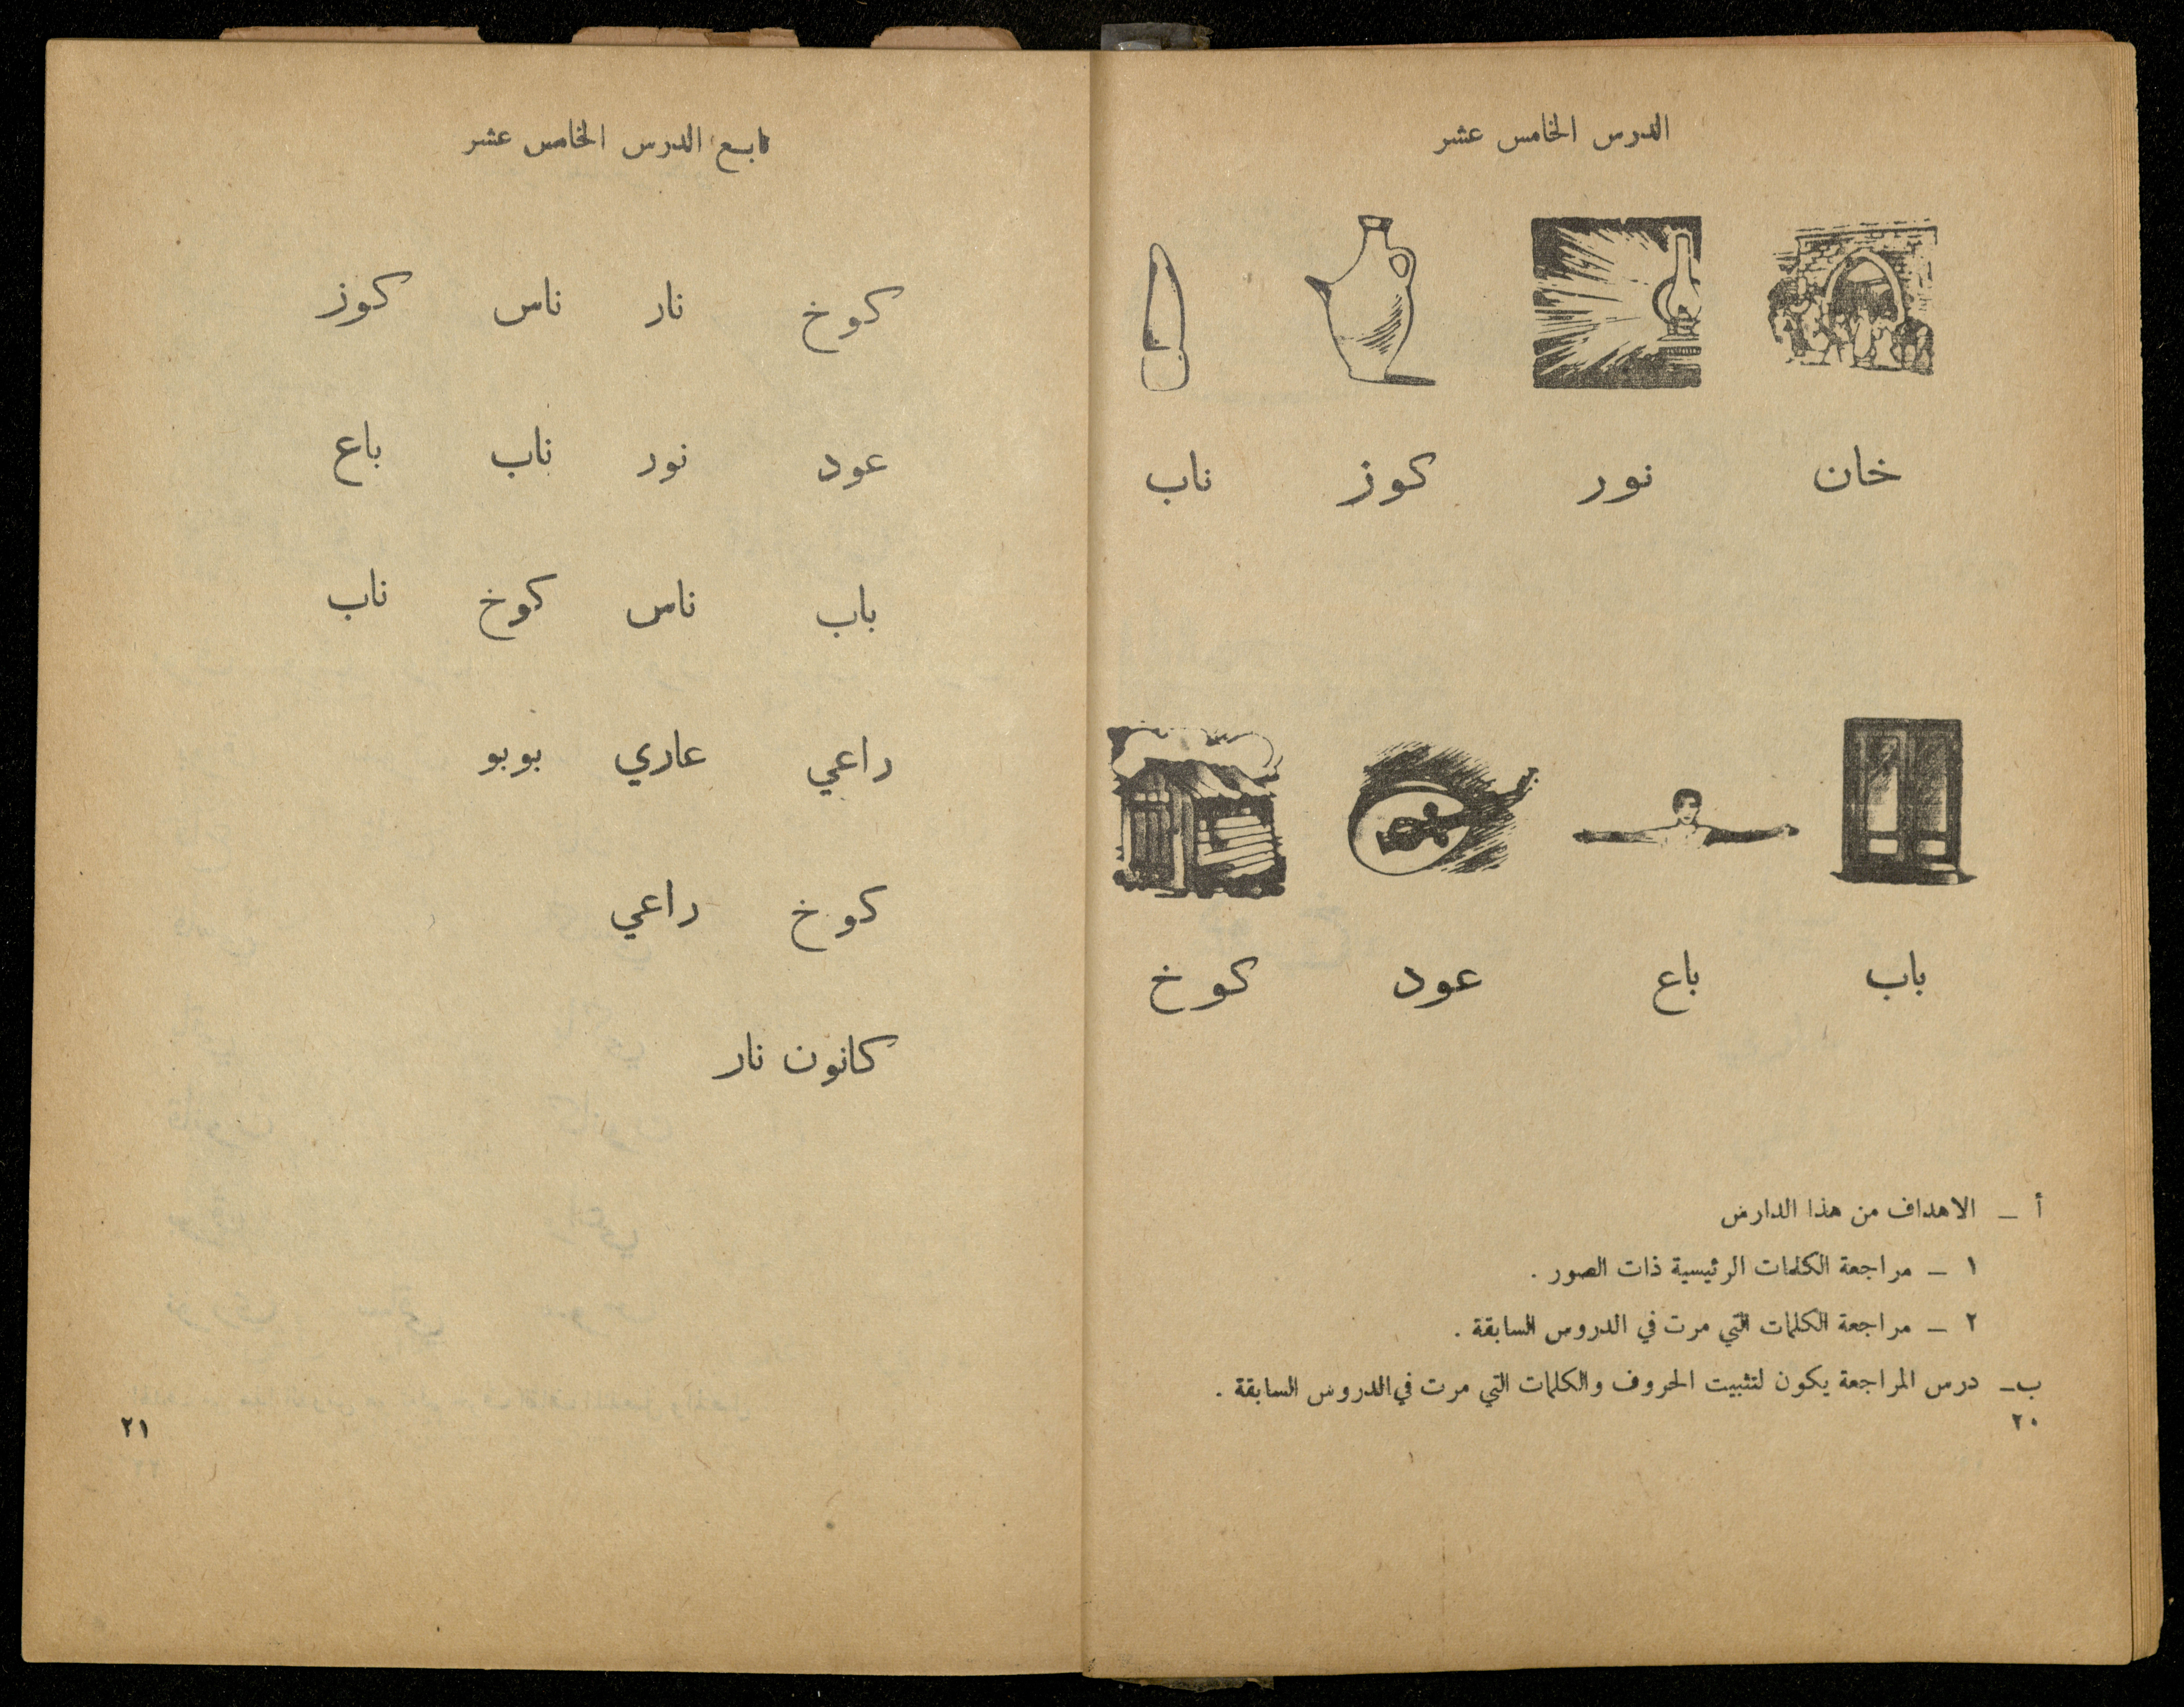 الدرس الخامس عشر
خان نور كوز ناب
باب باع عود كوخ
أ ـ الاهداف من هذا الدارس
١ ـ مراجعة الكلمات الرئيسية ذات الصور .
٢ ـ مراجعة الكلمات التي مرت في الدروس السابقة .
ب ـ درس المراجعة يكون لتثبيت الحروف والكلمات التي مرت في الدروس السابقة .
٢٠
تابع الدرس الخامس عشر
كوخ نار ناس كوز
عود نور ناب باع
باب ناس كوخ ناب
راعي عاري بوبو
كوخ راعي
كانون نار
٢١